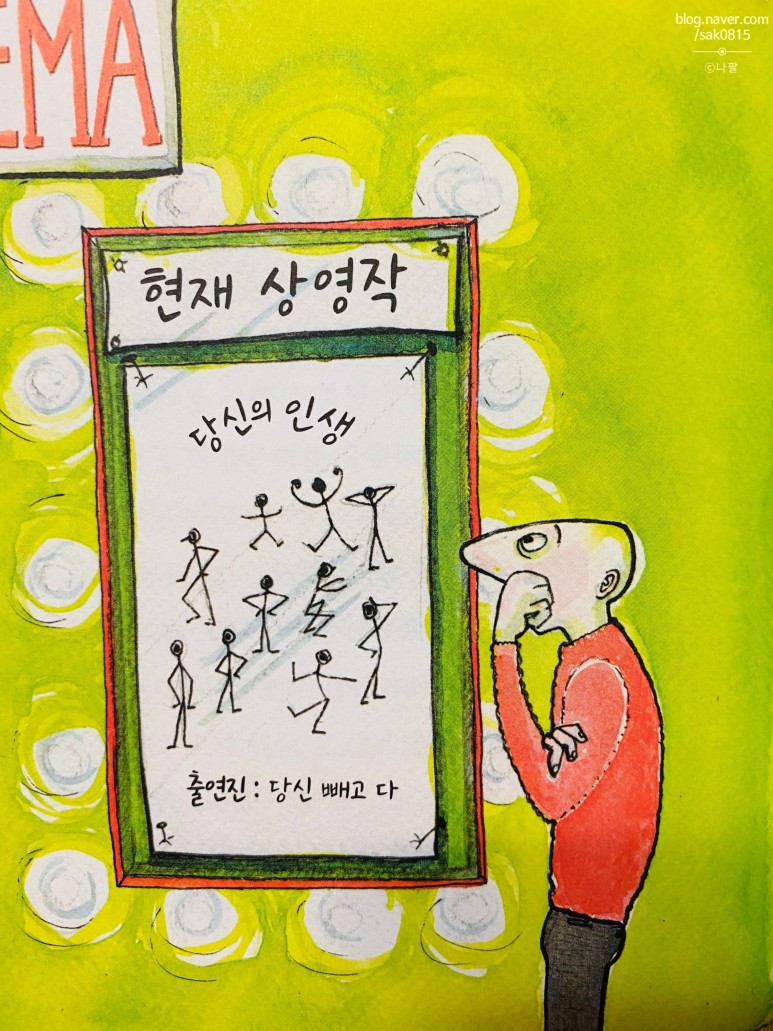 blog.naver.com
/sak0815
ⓒ나팔
EMA
현재 상영작
당신의 인생
출연진 : 당신 빼고 다